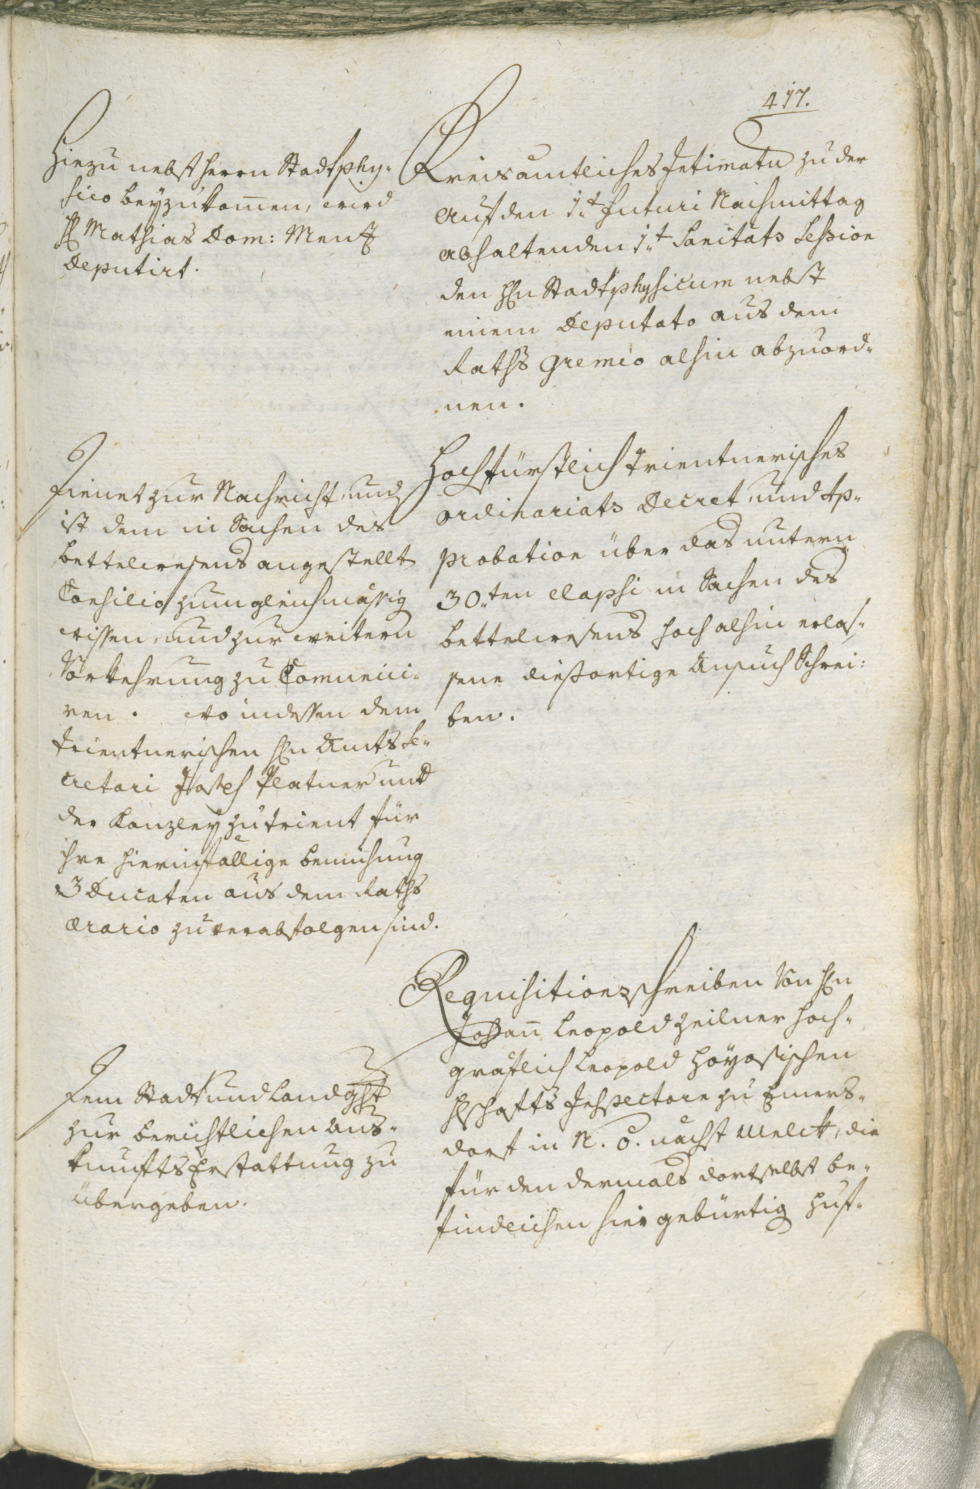 417.
Hiezu nebst Herrn Stadtphy-
sico beyzukom̅en, wird
H Mathias Dom: Menz
Deputirt.
Kreisamtliches Intimatum zu der
auf den 1.t futuri Nachmittag
abhaltenden 1.t Sanitäts Session
den H̅n Stadtphysicum nebst
einem Deputato aus dem
Raths Gremio alhin abzuord-
nen.
Dienet zur Nachricht, und
ist dem in Sachen des
bettelwesens angestellt
Consilio zum gleichmässig
wissen, und zur weitern
Vorkehrung zu Com̅unici-
ren. wo indessen dem
trientnerischen H̅n Amts Se-
cretari Joseph Platner und
der Kanzley zu trient für
ihre hierinfällige bemühung
3 Ducaten aus dem Raths
ærario zu verabfolgen sind.
Hochfürstlich trientnerisches
ordinariats Decret, und Ap-
probation über das untern
30.ten elapsi in Sachen des
bettelwesens hoch alhin erlas-
sene diesortige Ansuch Schrei:
ben.
Dem Stadt und Landght
zur berichtlichen Aus-
kunfts Erstattung zu
übergeben.
Requisitionsschreiben von H̅n
Johan̅ Leopold Zeilner hoch-
gräflich Leopold Hoyosischen
Hschafts Inspectore zu Emers-
dorf in N. Ö. nächst Melck, die
für den dermals dortselbst be-
findlichen hier gebürtig Huf-